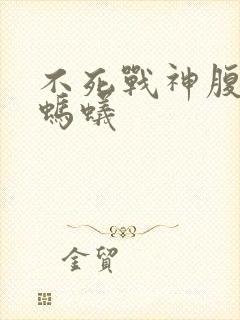 不死戰神腹
螞蟻
金貿